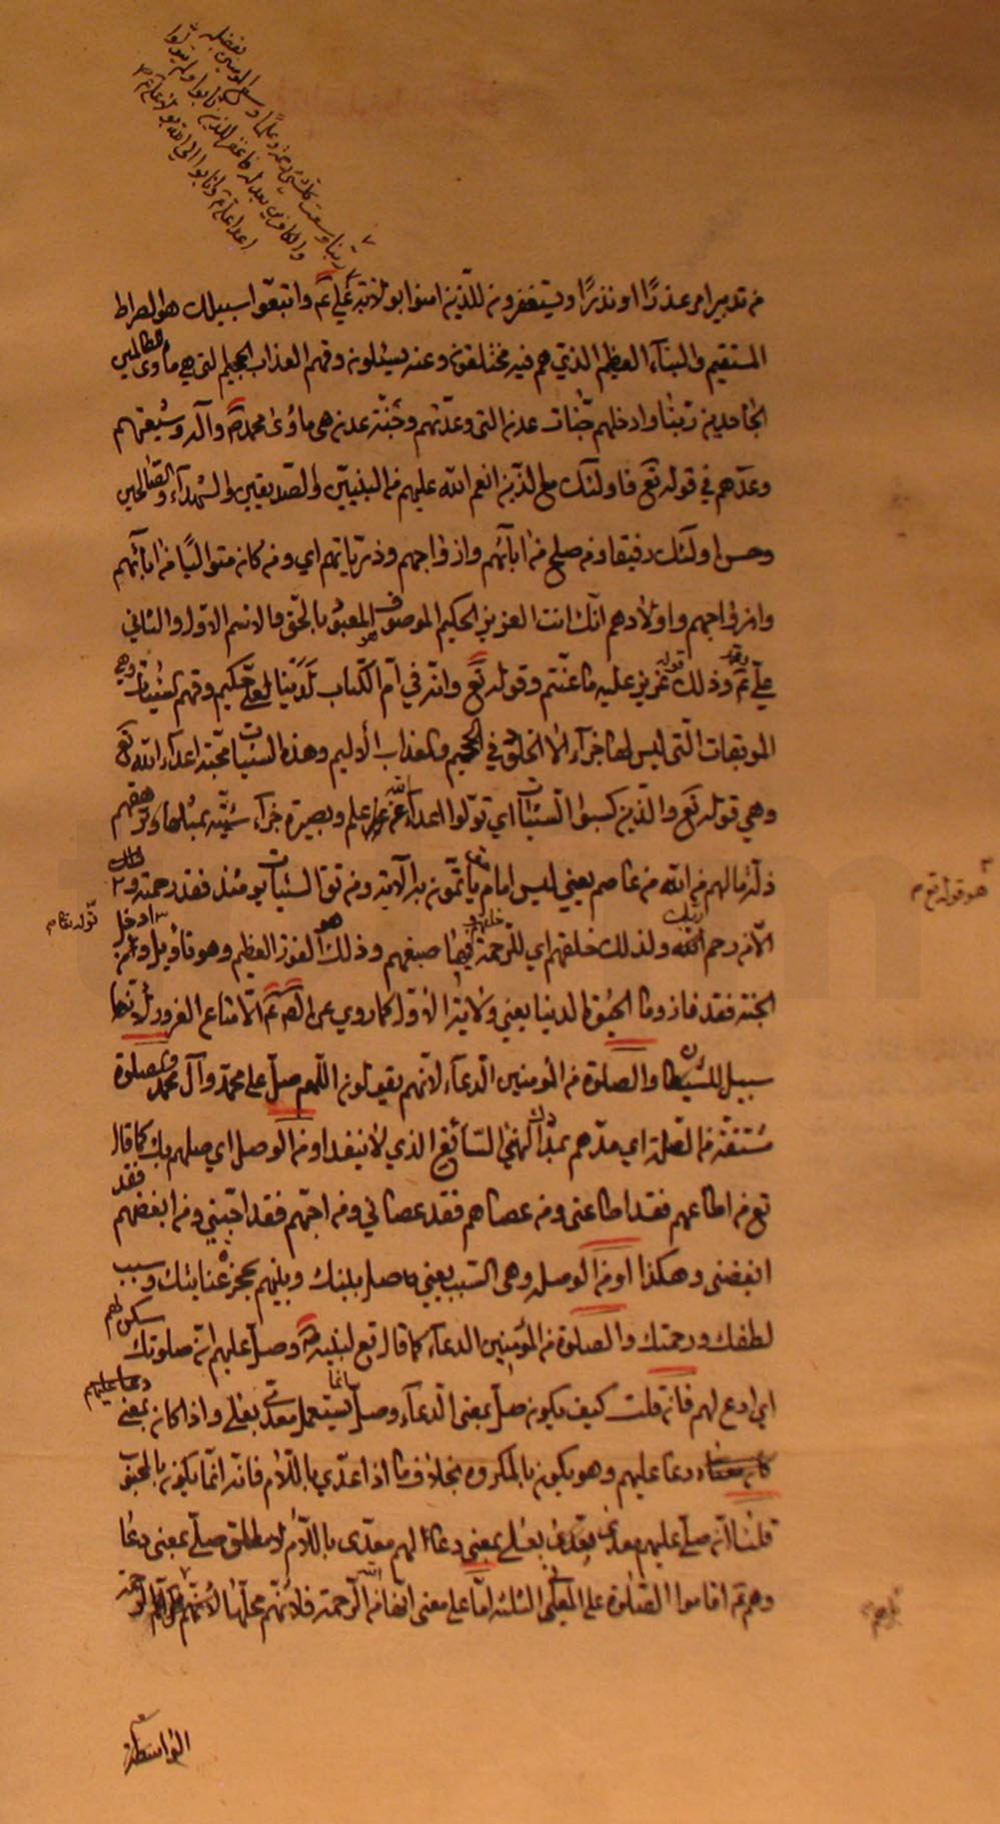 ربنا وسعت كل شيء رحمة وعلما
فاغفر للذين تابوا
من تدبير امر عذرًا او نذرًا ويستغفرون للذين امنوا بولايته علي عم واتبعوا سبيلك هو الصراط
المستقيم والنبأ العظيم الذي هم فيه مختلفون وعنه يسئلون وقهم العذاب الجحيم التي هي مأوى الظالمين
الجاحدين ربنا وادخلهم جنات عدن التي وعدتهم وجنة عدن هي مأوى محمد ص وآله وشيعتهم
وعدهم في قوله تع فاولئك مع الذين انعم الله عليهم من النبيين والصديقين والشهداء والصالحين
وحسن اولئك رفيقا ومن صلح من ابآئهم وازواجهم وذرياتهم اي ومن كان متواليًا من ابآئهم
وازواجهم واولادهم انك انت العزيز الحكيم الموصوف المعبود بالحق والاسم الاول والثاني
علي عم وذلك قوله عزيز عليه ما عنتم وقوله تع وانه في ام الكتاب لدينا لعلي حكيم وقهم السيئات وهي
الموبقات التي ليس لها جزآء الا الخلود في الجحيم والعذاب الأليم وهذه السيئات محبة اعداء الله تع
وهي قوله تع والذين كسبوا السيئات اي تولوا اعداء الله عن علم وبصيرة جزآء سيئة بمثلها وترهقهم
ذلة ما لهم من الله من عاصم يعني ليس امام يأتمون به الآية ومن تق السيئات يومئذ فقد رحمته
هو قوله تع
الا من رحم ربك ولذلك خلقهم اي للرحمة صبغهم وذلك هو الفوز العظيم وهو تأويل ادخل
قوله تعا
الجنة فقد فاز وما الحيوة الدنيا يعني ولاية الاول كما روي عن عم الا متاع الغرور لانها
سبيل للشيطان والصلوة من المؤمنين الدعآء لانهم يقولون اللهم صل على محمد وآل محمد صلوة
مشتقة من الصلة اي مدهم بمددك الهنئ السآئغ الذي لا ينفد او من الوصل اي صلهم بك كما قال
تع من اطاعهم فقد اطاعني ومن عصاهم فقد عصاني ومن احبهم فقد احبني ومن ابغضهم فقد
ابغضني وهكذا او من الوصلة وهي السبب يعني صل بينك وبينهم بحجزة عنايتك وسبب
لطفك ورحمتك والصلوة من المؤمنين الدعآء كما قال تع لنبيه ص وصل عليهم ان صلوتك سكن لهم
اي ادع لهم فان قلت كيف يكون صل بمعنى الدعآء وصل انما يستعمل معدى بعلى واذا كان بمعنى دعا عليهم
دعا عليهم وهو يكون بالمكروه بخلاف ما اذا عدي باللام فانه انما يكون بالمحبوب
قلنا ان صلى عليهم معدى بعلى بمعنى دعا لهم معدى باللام لا مطلق صلى بمعنى دعا
وهم عم اقاموا الصلوة على المعاني الثلثة اما على معنى انها من الله الرحمة فلانهم محلها
الواسطة